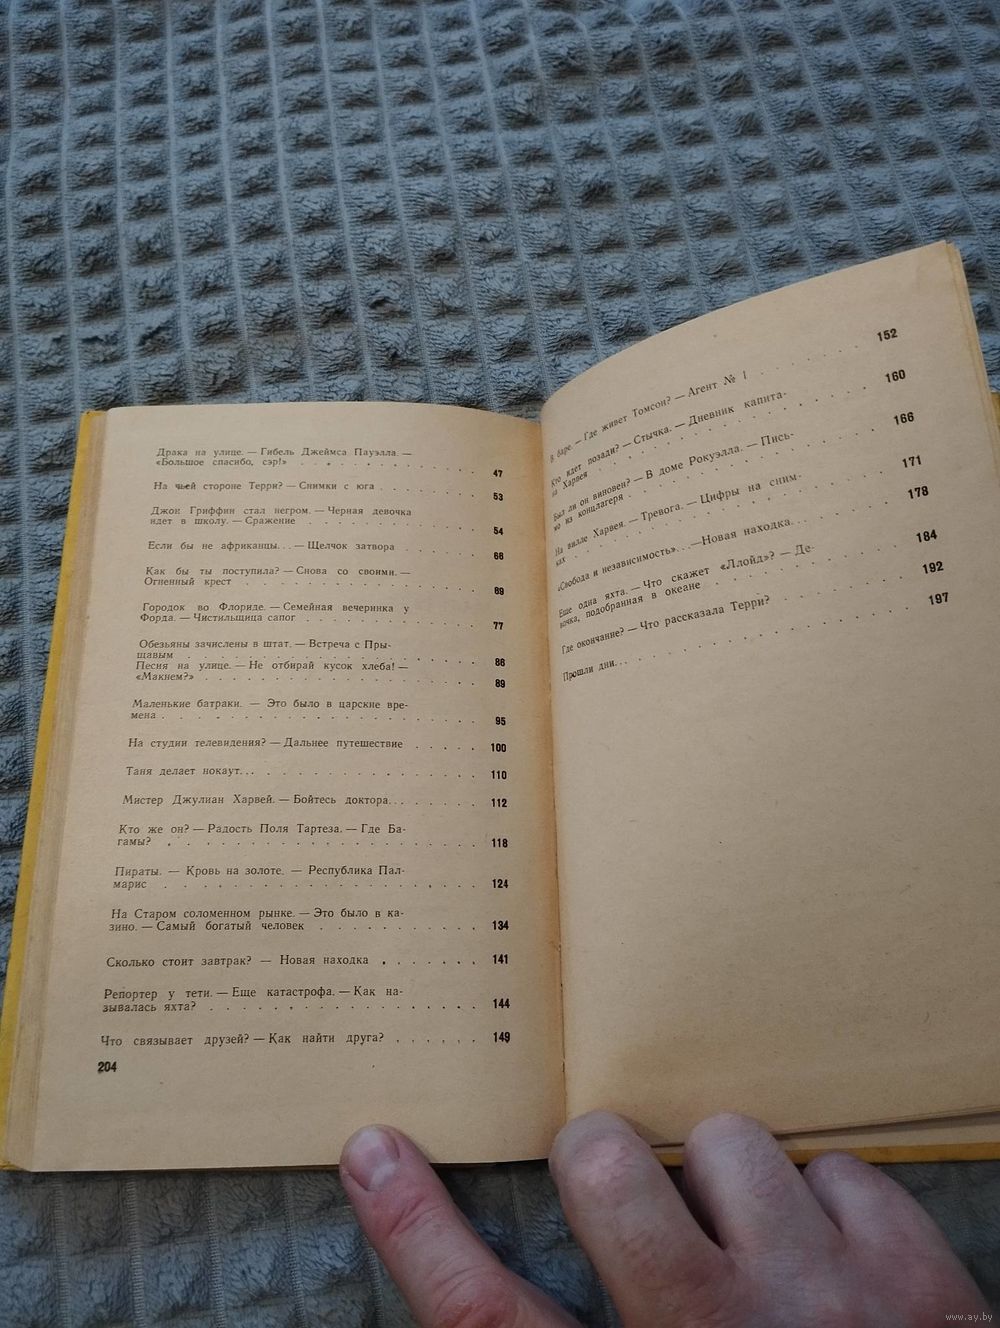 Драка на улице. — Гибель Джеймса Пауэлла. —
«Большое спасибо, сэр!» . . . . . . . . . 47
На чьей стороне Терри? — Снимки с юга . . . . . . 53
Джон Гриффин стал негром. — Черная девочка
идет в школу. — Сражение . . . . . . . . . 54
Если бы не африканцы... — Щелчок затвора . . . . . 66
Как бы ты поступила? — Снова со своими. —
Огненный крест . . . . . . . . . . . . 69
Городок во Флориде. — Семейная вечеринка у
Форда. — Чистильщица сапог . . . . . . . . . 77
Обезьяны зачислены в штат. — Встреча с Пры-
щавым . . . . . . . . . . . . . . . 86
Песня на улице. — Не отбирай кусок хлеба! —
«Макнем?» . . . . . . . . . . . . . . 89
Маленькие батраки. — Это было в царские вре-
мена . . . . . . . . . . . . . . . . 95
На студии телевидения? — Дальнее путешествие . . . . . 100
Таня делает нокаут... . . . . . . . . . . . 110
Мистер Джулиан Харвей. — Бойтесь доктора... . . . . . 112
Кто же он? — Радость Поля Тартеза. — Где Ба-
гамы? . . . . . . . . . . . . . . . 118
Пираты. — Кровь на золоте. — Республика Пал-
марис . . . . . . . . . . . . . . . 124
На Старом соломенном рынке. — Это было в ка-
зино. — Самый богатый человек . . . . . . . . 134
Сколько стоит завтрак? — Новая находка . . . . . . 141
Репортер у тети. — Еще катастрофа. — Как на-
зывалась яхта? . . . . . . . . . . . . . 144
Что связывает друзей? — Как найти друга? . . . . . . 149
204
В баре. — Где живет Томсон? — Агент № 1 . . . . . . 152
Кто идет позади? — Стычка. — Дневник капита-
на Харвея . . . . . . . . . . . . . 160
Был ли он виновен? — В доме Рокуэлла. — Пись-
мо из концлагеря . . . . . . . . . . . 166
На вилле Харвея. — Тревога. — Цифры на сним-
ках . . . . . . . . . . . . . . . 171
«Свобода и независимость»... — Новая находка... . . . . 178
Еще одна яхта. — Что скажет «Ллойд»? — Де-
вочка, подобранная в океане . . . . . . . . 184
Где окончание? — Что рассказала Терри? . . . . . . 192
Прошли дни... . . . . . . . . . . . . . 197
www.ay.by